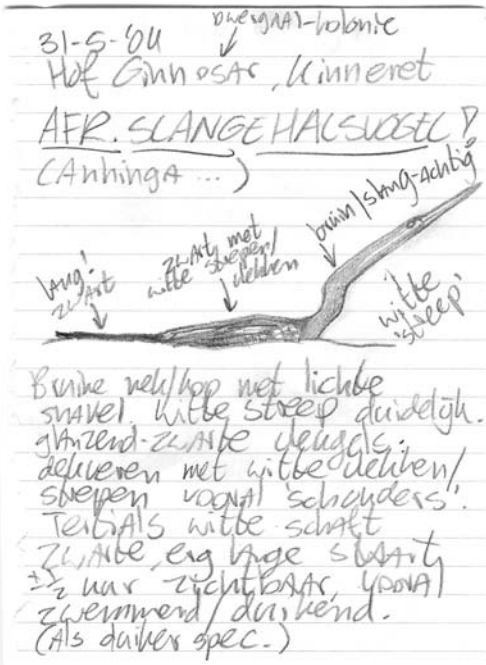 31-5-'04
dwergaal-kolonie
Hof Ginnosar, Kinneret
AFR. SLANGEHALSVOGEL!
(Anhinga ...)
bruin/slang-achtig
zwart met
witte strepen/
vlekken
lang!
zwart
witte
'streep'
Bruine nek/kop met lichte
snavel. Witte streep duidelijk.
glanzend-zwarte vleugels.
dekveren met witte vlekken/
strepen vooral 'schouders'.
Tertials witte schaft
zwarte, erg lange staart,
± ½ uur zichtbaar, vooral
zwemmend/duikend.
(Als duiker spec.)